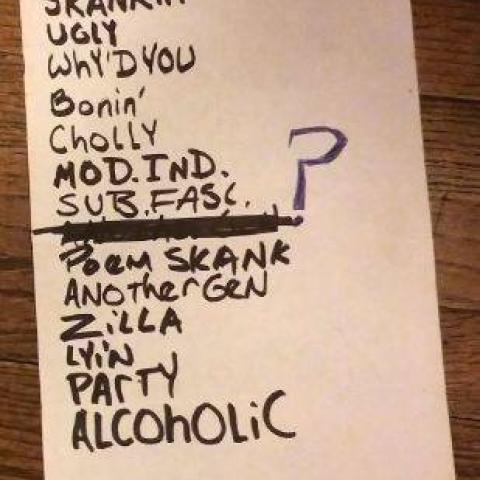 SKANKIN'
UGLY
WhY'D YOU
Bonin'
ChoLLY
MOD. IND.
SUB. FASC.
?
PoeM SKANK
ANOtherGeN
ZiLLA
LYiN
PArTY
ALCOhOLiC